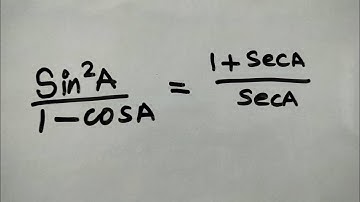 Sin²A / 1 - cosA = 1 + SecA / SecA